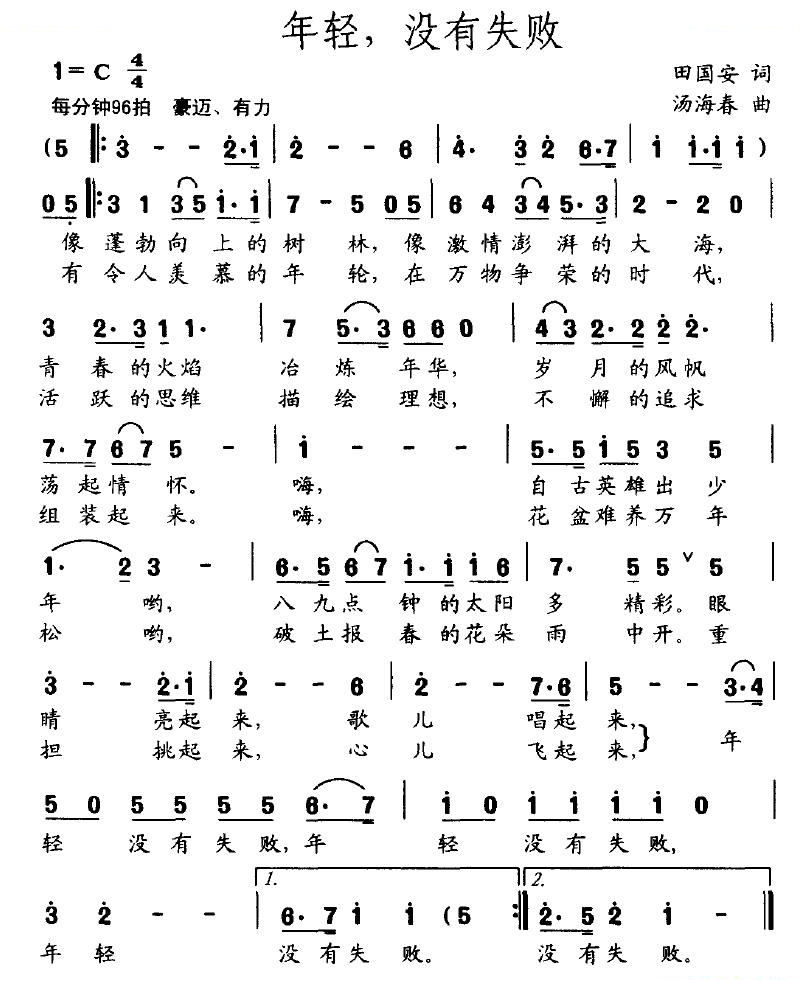 年轻，没有失败
1=C 4/4
田国安 词
每分钟96拍 豪迈、有力
汤海春 曲
(5 ‖: 3 - - 2·1 | 2 - - 6 | 4· 3 2 6·7 | 1 1·1 1 )
05 ‖: 3 1 35 1·1 | 7 - 5 05 | 6 4 34 5·3 | 2 - 2 0
像蓬勃向上的树林，像激情澎湃的大海，
有令人羡慕的年轮，在万物争荣的时代，
3 2·3 1 1· | 7 5·3 66 0 | 43 2·2 2 2·
青春的火焰 冶炼年华， 岁月的风帆
活跃的思维 描绘理想， 不懈的追求
7·7 67 5 - | 1 - - - | 5·5 15 3 5
荡起情怀。 嗨， 自古英雄出少
组装起来。 嗨， 花盆难养万年
1· 2 3 - | 6·5 67 1·1 16 | 7· 5 5 ∨ 5
年哟， 八九点钟的太阳多精彩。眼
松哟， 破土报春的花朵雨中开。重
3 - - 2·1 | 2 - - 6 | 2 - - 7·6 | 5 - - 3·4
睛亮起来，歌儿唱起来，
担挑起来，心儿飞起来，} 年
5 0 5 5 5 6· 7 | 1 0 1 1 1 1 0
轻 没有失败，年 轻 没有失败，
1. 2.
3 2 - - | 6·7 1 1 (5 :‖ 2·5 2 1 - ‖
年轻 没有失败。 没有失败。